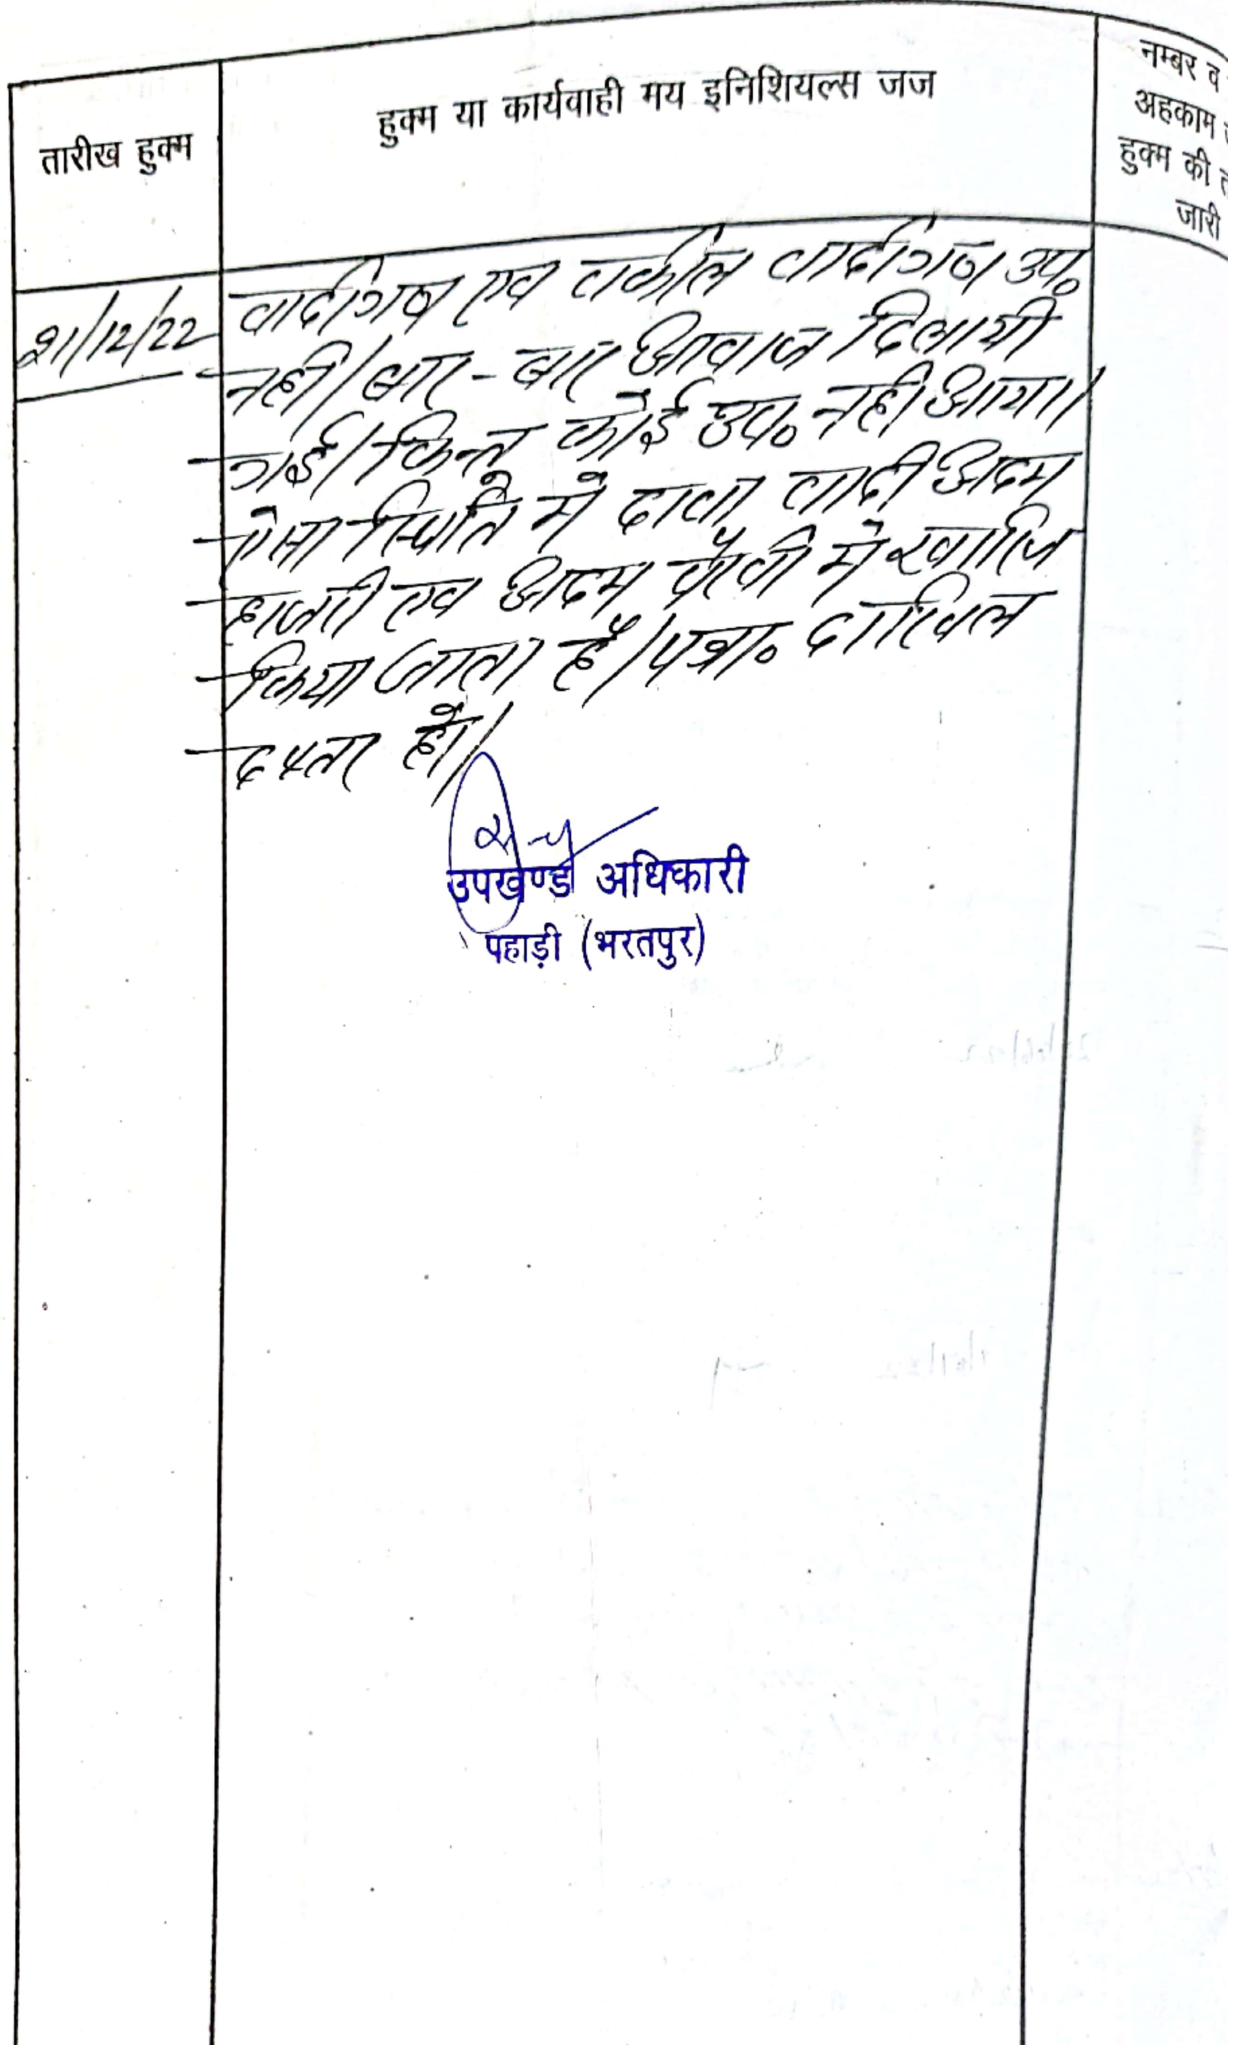 तारीख हुक्म
हुक्म या कार्यवाही मय इनिशियल्स जज
नम्बर व
अहकाम
हुक्म की
जारी
21/12/22
वादीगण एव वकील वादीगण उप०
नही। बार-बार आवाज दिलायी
गई। किन्तु कोई उप० नही आया।
ऐसी स्थिति मे दावा वादी अदम
हाजरी एव अदम पैरवी मे खारिज
किया जाता है। पत्रा० दाखिल
दफ्तर हो।
उपखण्ड अधिकारी
पहाड़ी (भरतपुर)